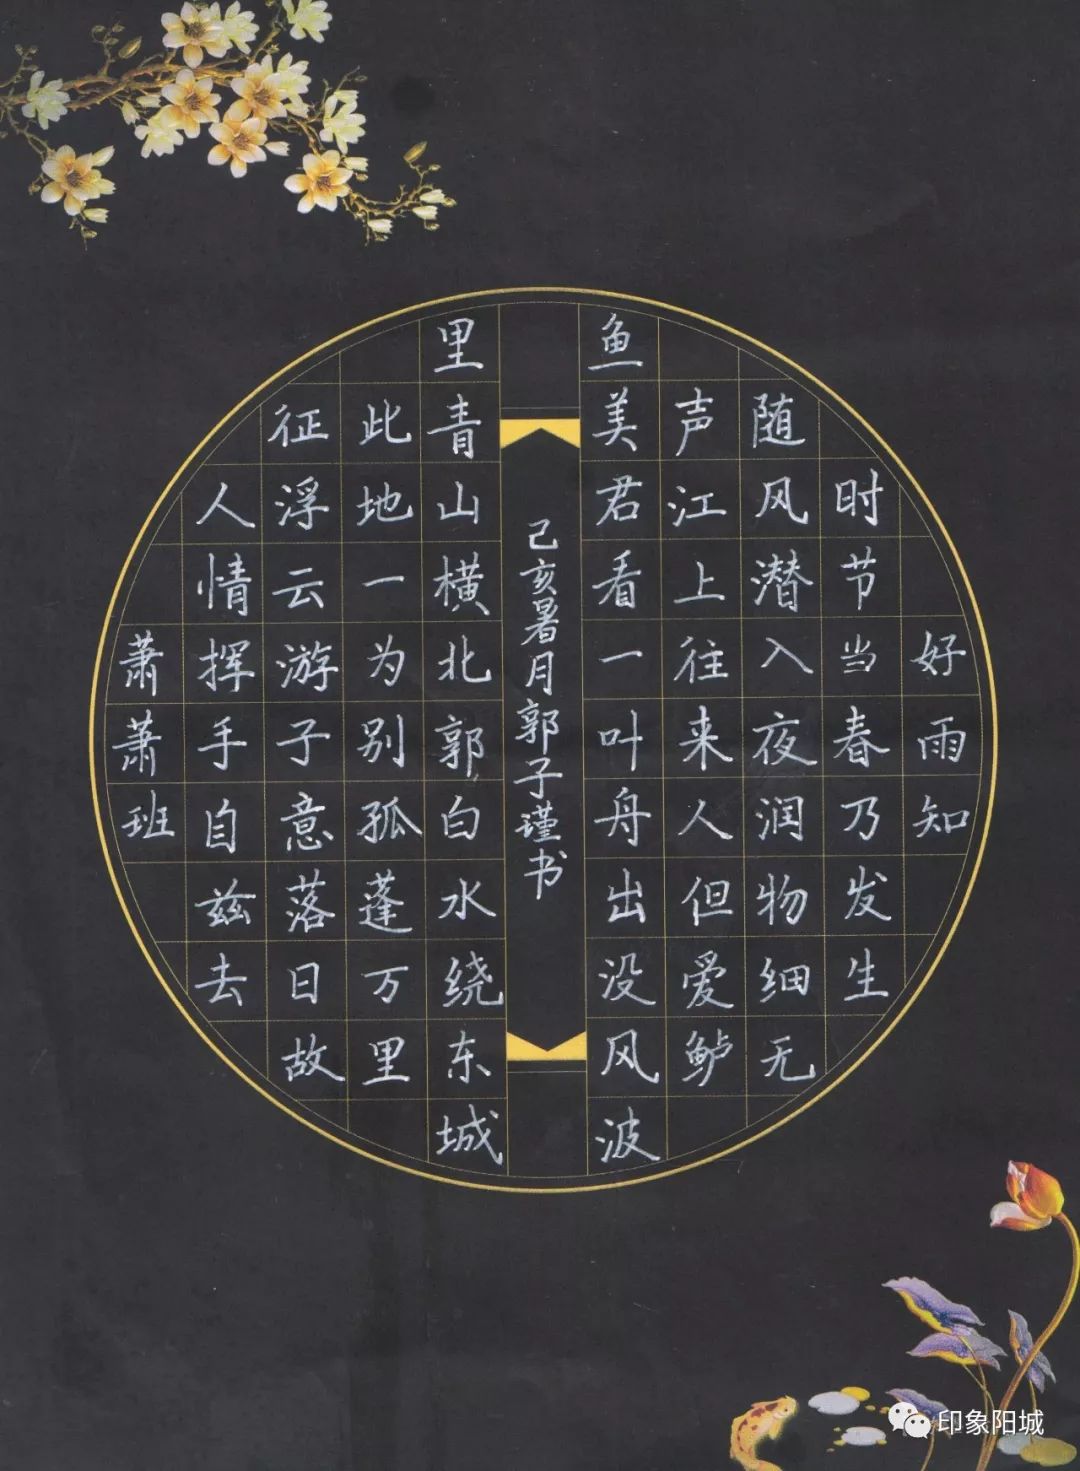 好雨知
时节当春乃发生
随风潜入夜润物细无
声江上往来人但爱鲈
鱼美君看一叶舟出没风波
己亥暑月郭子瑾书
里青山横北郭白水绕东城
此地一为别孤蓬万里
征浮云游子意落日故
人情挥手自兹去
萧萧班
印象阳城